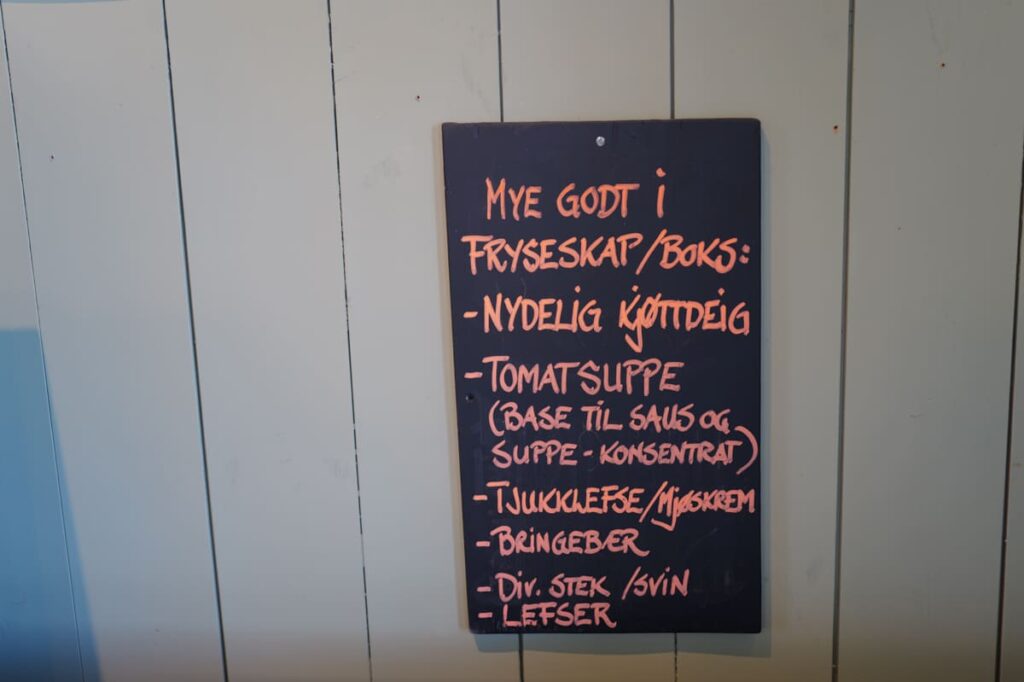 MYE GODT i
FRYSESKAP/BOKS:
- NYDELIG KJØTTDEIG
- TOMATSUPPE
(BASE TIL SAUS OG
SUPPE - KONSENTRAT)
- TJUKKLEFSE/MJØSKREM
- BRINGEBÆR
- DIV. STEK /SVIN
- LEFSER